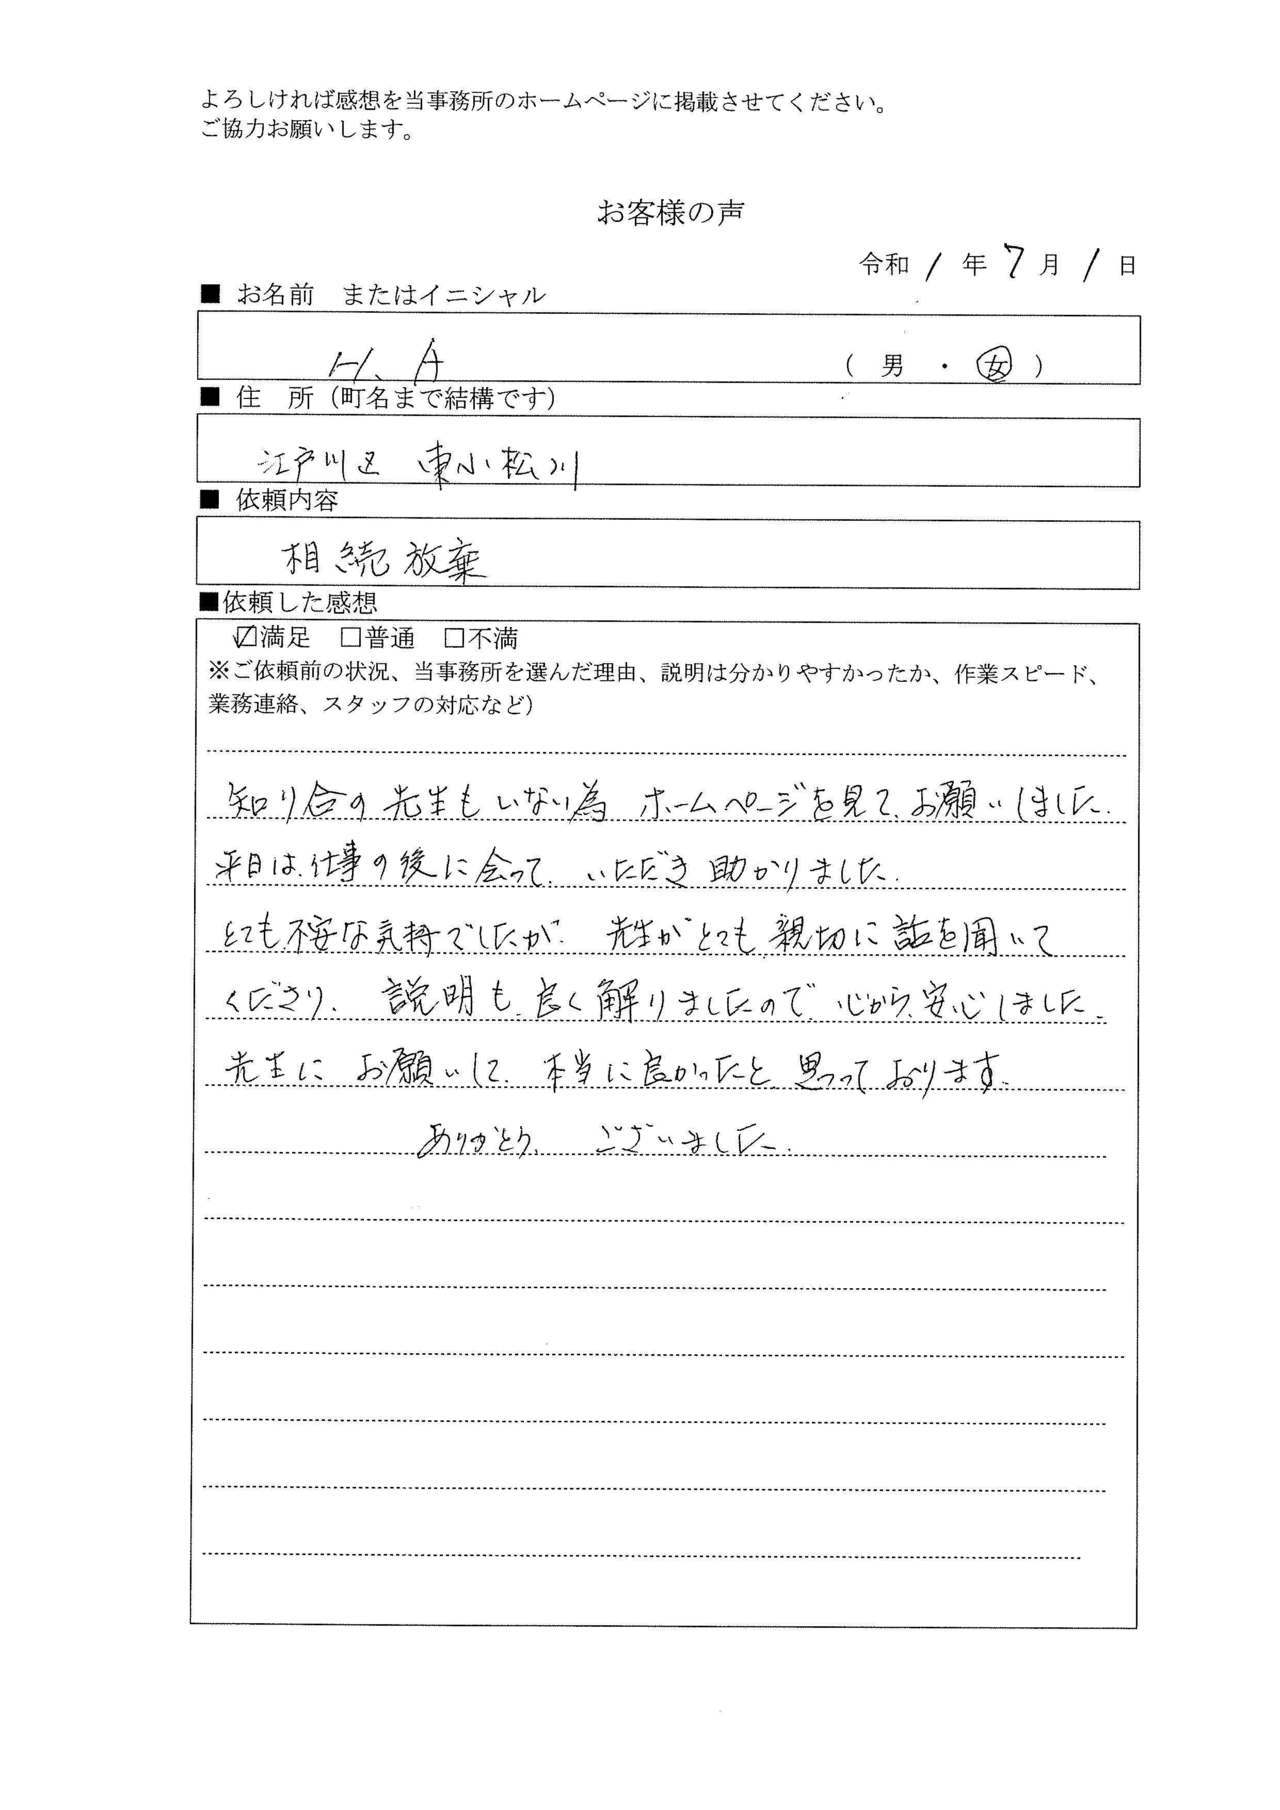 よろしければ感想を当事務所のホームページに掲載させてください。
ご協力お願いします。
お客様の声
令和 1 年 7 月 1 日
■ お名前　またはイニシャル
H.A （ 男 ・ 女 ）
■ 住　所（町名まで結構です）
江戸川区 東小松川
■ 依頼内容
相続放棄
■依頼した感想
☑満足 □普通 □不満
※ご依頼前の状況、当事務所を選んだ理由、説明は分かりやすかったか、作業スピード、
業務連絡、スタッフの対応など）
知り合の先生もいない為 ホームページを見て、お願いしました.
平日は、仕事の後に会って、いただき助かりました.
とても、不安な気持でしたが、先生がとても、親切に話を聞いて
くださり、説明も、良く解りましたので、心から、安心しました.
先生に お願いして、本当に良かったと、思っております.
ありがとう、ございました.